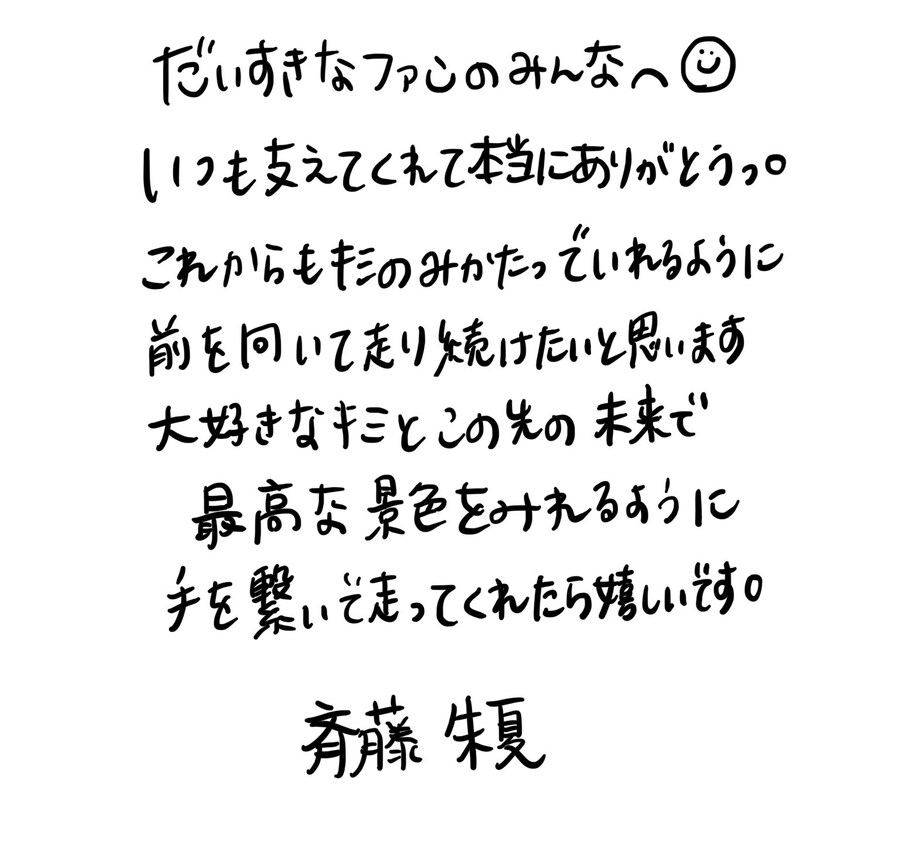 だいすきなファンのみんなへ
いつも支えてくれて本当にありがとうっ。
これからもキミのみかたっでいれるように
前を向いて走り続けたいと思います
大好きなキミとこの先の未来で
最高な景色をみれるように
手を繋いで走ってくれたら嬉しいです。
斉藤 朱夏